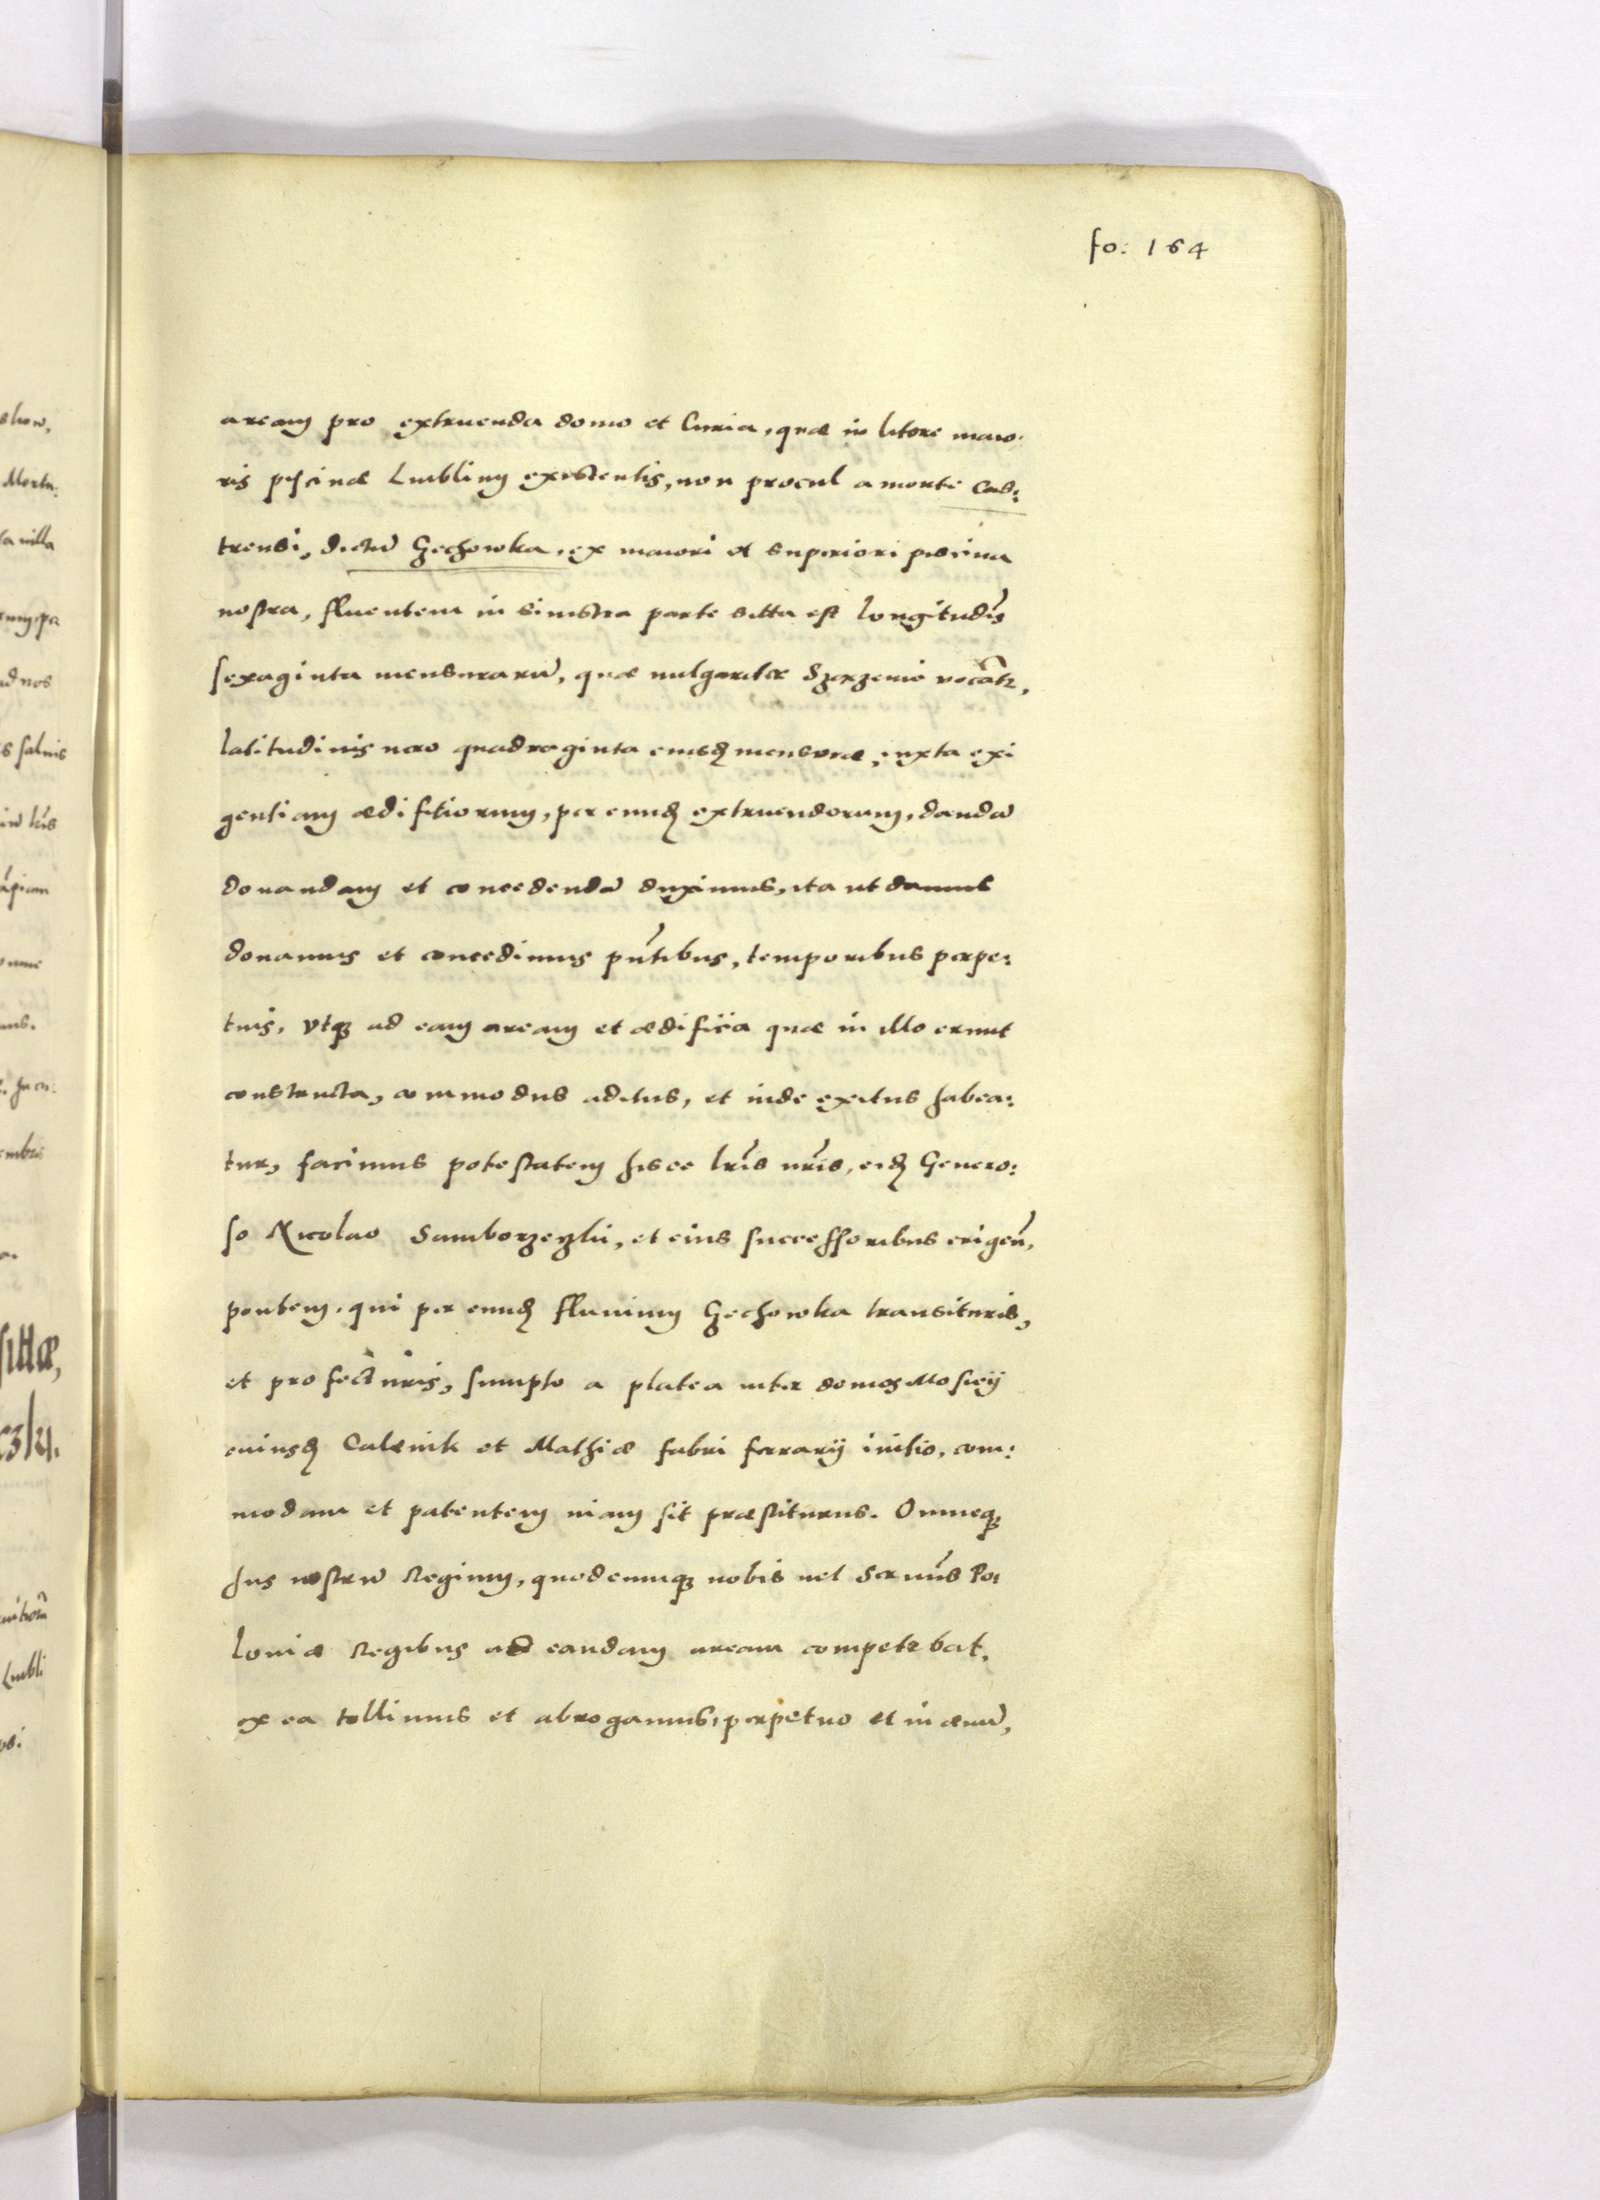 fo: 164
aream pro extruenda domo et Curia, quæ in litore maio.
ris piscinæ Lublinᵐ existentis, non procul a monte Cas:
trensi, dictū Gechowka, ex maiori et superiori piscina
nostra, fluentem in sinistra parte sitta est longitudīs
sexaginta mensurarū, quæ uulgariter Szerzenie vocāt̄r,
latitudinis uero quadraginta eiusdꝫ mensuræ, iuxta exi
gentiam ædifitiorum, per eundꝫ extruendorum, dandā
donandam et concedendā duximus, ita ut damus
donamus et concedimus pn̄tibus, temporibus perpe:
tuis, Vtqꝫ ad eam aream et ædificia quæ in illo erunt
constructa, commodus aditus, et inde exitus habea:
tur, facimus potestatem hisce lr̄is nr̄is, eidꝫ Genero:
so Nicolao Samborzeczki, et eius successoribus erigen̄,
pontem, qui per eundꝫ fluuium Gechowka transituris,
et profecturis, sumpto a platea inter domos Mosieÿ
cuiusdꝫ Calenik et Mathiæ fabri ferrarÿ initio, com:
modam et patentem uiam sit præstiturus. Omneqꝫ
Jus nostrū Regium, quodcunqꝫ nobis uel Serm̄is Po:
loniæ Regibus ad eandam aream competebat,
ex ea tollimus et abrogamus, perpetuo et in æuū,